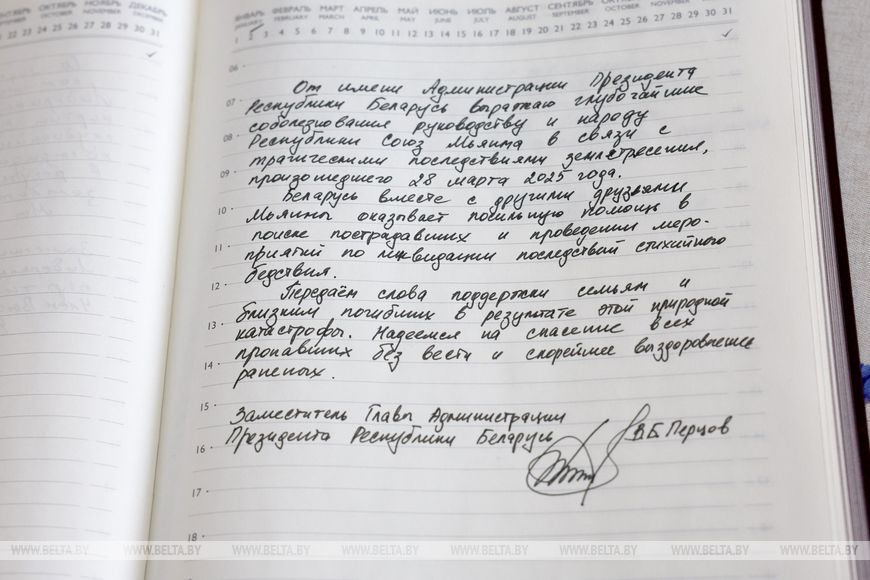 ОКТЯБРЬ НОЯБРЬ ДЕКАБРЬ
OCTOBER NOVEMBER DECEMBER
22 23 24 25 26 27 28 29 30 31
ЯНВАРЬ ФЕВРАЛЬ МАРТ АПРЕЛЬ МАЙ ИЮНЬ ИЮЛЬ АВГУСТ СЕНТЯБРЬ
JANUARY FEBRUARY MARCH APRIL MAY JUNE JULY AUGUST SEPTEMBER OCTOBER NOVEMBER DECEMBER
1 2 3 4 5 6 7 8 9 10 11 12 13 14 15 16 17 18 19 20 21 22 23 24 25 26 27 28 29 30 31
06
От имени Администрации Президента
07 Республики Беларусь выражаю глубочайшие
соболезнование руководству и народу
08 Республики Союз Мьянма в связи с
трагическими последствиями землетресения,
09 произошедшего 28 марта 2025 года.
Беларусь вместе с другими друзьями
10 Мьянмы оказывает посильную помощь в
поиске пострадавших и проведении меро-
11 приятий по ликвидации последствий стихийного
12 бедствия.
Передаём слова поддержки семьям и
близким погибших в результате этой природной
13 катастрофы. Надеемся на спасение всех
пропавших без вести и скорейшее выздоровление
14 раненых.
15 Заместитель Главы Администрации
Президента Республики Беларусь В.Б. Перцов
16
17
18
WWW.BELTA.BY WWW.BELTA.BY WWW.BELTA.BY WWW.BELTA.BY WWW.BELTA.BY WWW.BELTA.BY WWW.BELTA.BY WWW.BELTA.BY